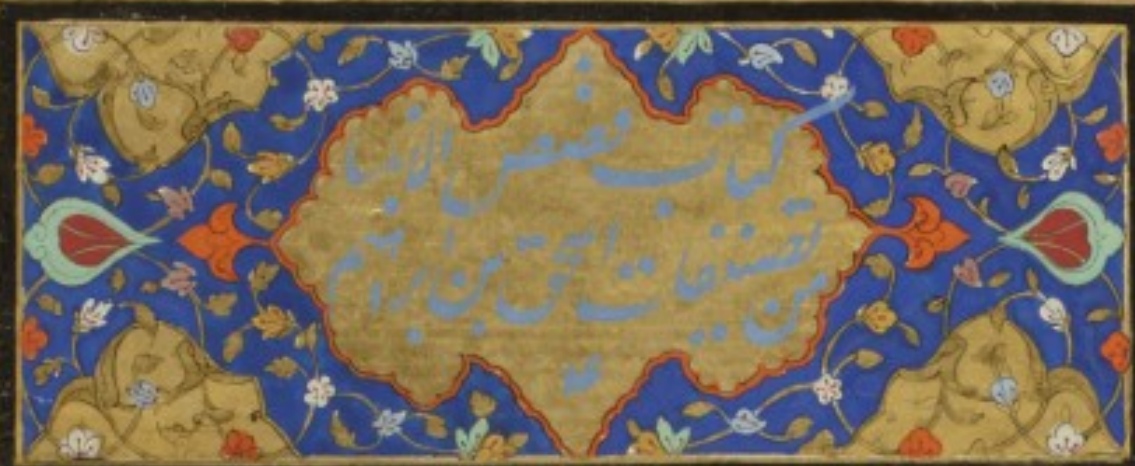 كتاب قصص الانبيا
من تصنيفات اسحق بن ابراهيم